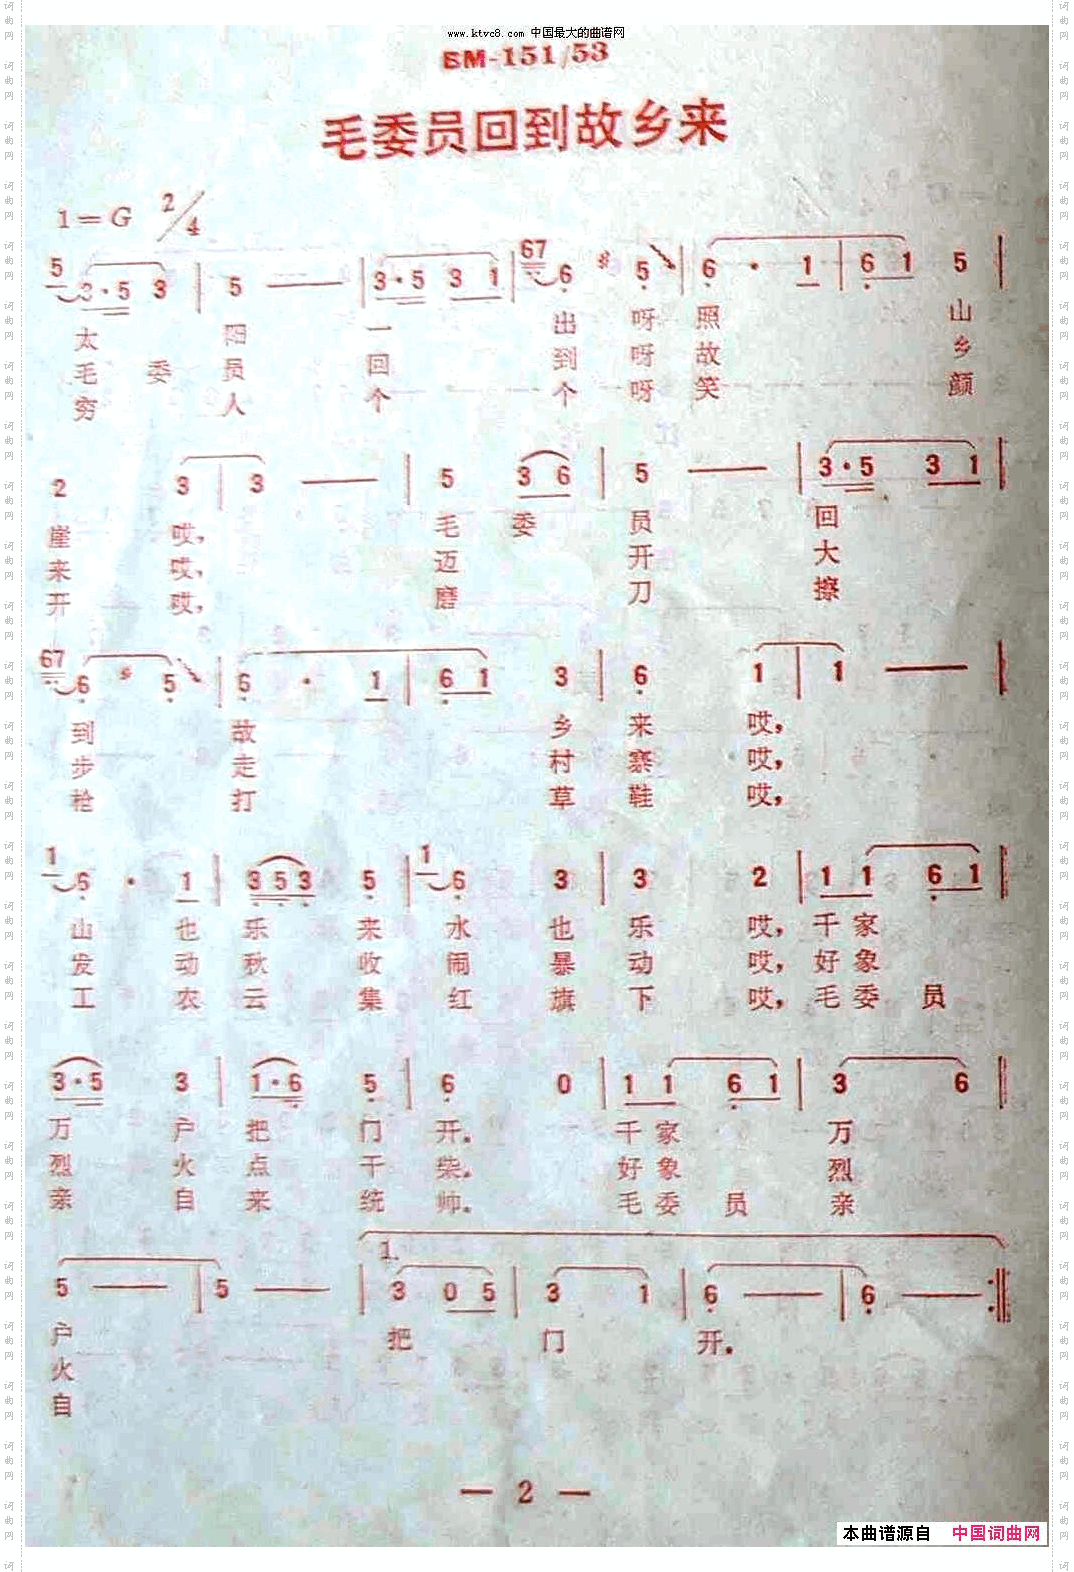 www.ktvc8.com 中国最大的曲谱网
BM-151/53
毛委员回到故乡来
1=G 2/4
5 3·5 3 | 5 — | 3·5 3 1 | 67 6 5 | 6 · 1 | 6 1 5 |
太 阳 一 出 呀 照 山
毛 委 员 回 到 呀 故 乡
穷 人 个 个 呀 笑 颜
2 3 | 3 — | 5 3 6 | 5 — | 3·5 3 1 |
崖 哎, 毛 委 员 回
来 哎, 迈 开 大
开 哎, 磨 刀 擦
67 6 5 | 6 · 1 | 6 1 3 | 6 1 | 1 — |
到 故 乡 来 哎,
步 走 村 寨 哎,
枪 打 草 鞋 哎,
1 6 · 1 | 3 5 3 5 | 1 6 3 | 3 2 | 1 1 6 1 |
山 也 乐 来 水 也 乐 哎, 千 家
发 动 秋 收 闹 暴 动 哎, 好 象
工 农 云 集 红 旗 下 哎, 毛 委 员
3·5 3 | 1·6 5 | 6 0 | 1 1 6 1 | 3 6 |
万 户 把 门 开. 千 家 万
烈 火 点 干 柴. 好 象 烈
亲 自 来 统 帅. 毛 委 员 亲
1.
5 — | 5 — | 3 0 5 | 3 1 | 6 — | 6 — :|
户 把 门 开.
火
自
— 2 —
本曲谱源自 中国词曲网